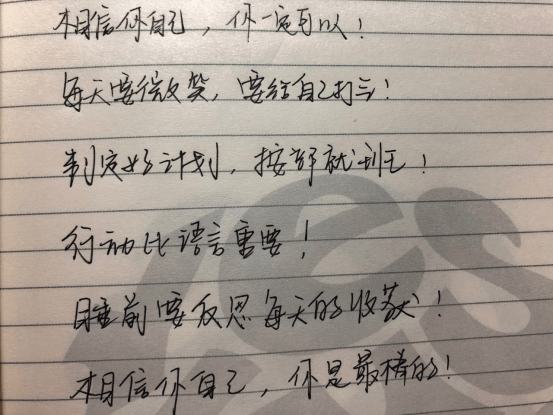 相信你自己，你一定可以！
每天要微笑，要给自己打气！
制定好计划，按部就班！
行动比语言重要！
睡前要反思每天的收获！
相信你自己，你是最棒的！